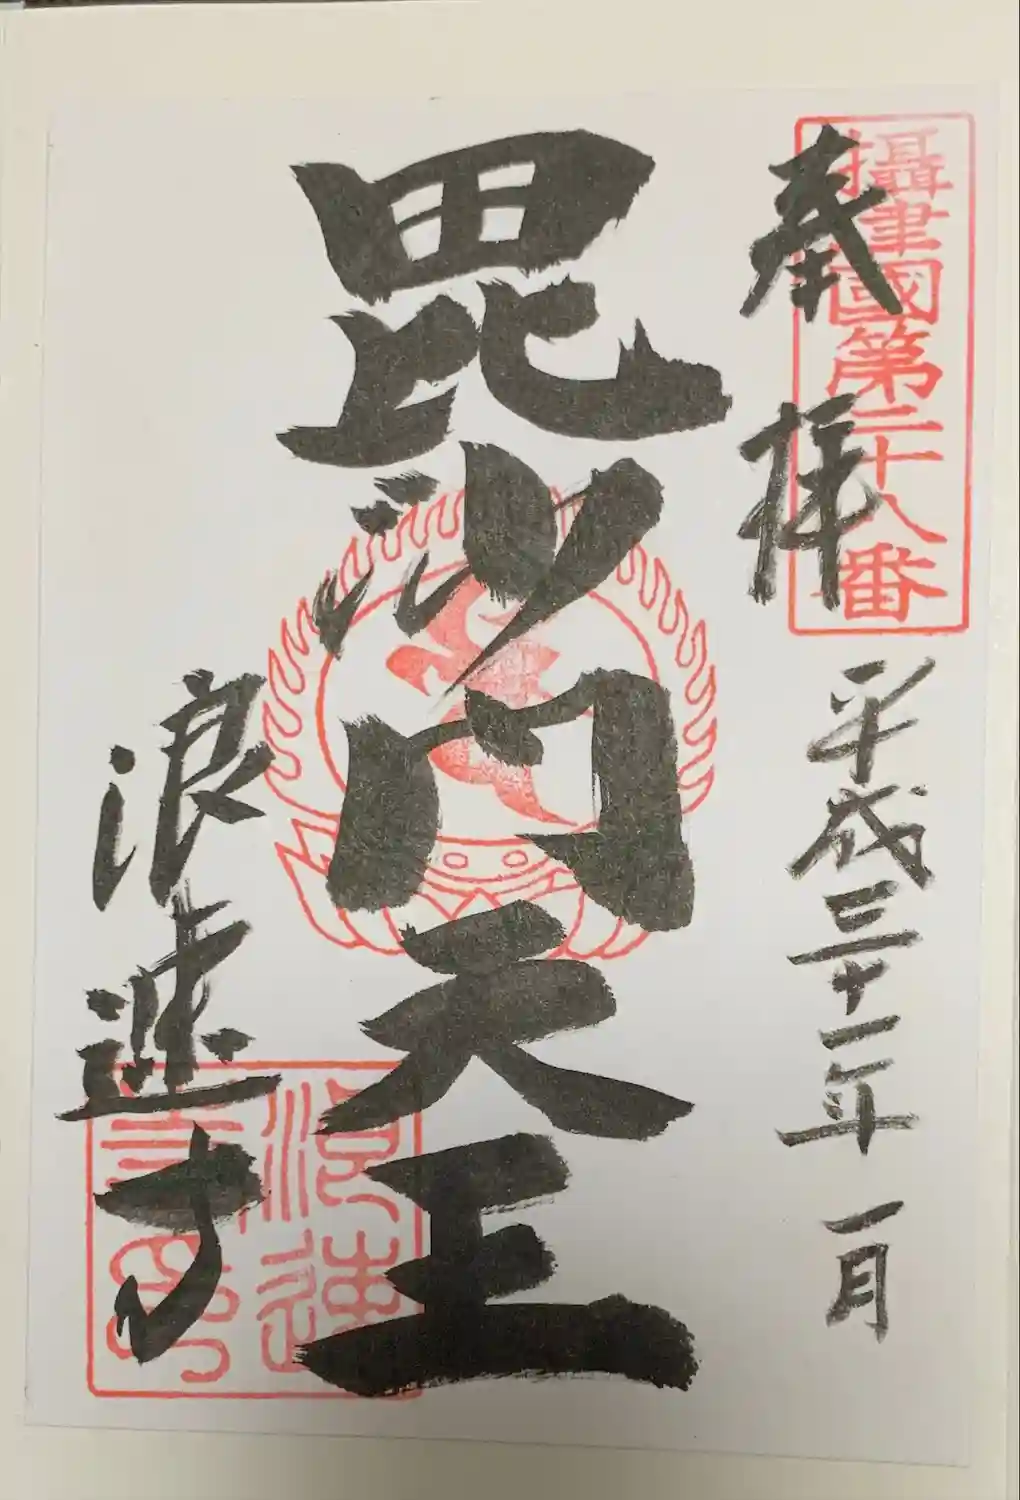 奉拝
攝津國第二十八番
平成三十一年一月
毘沙門天王
浪速寺
浪速寺印